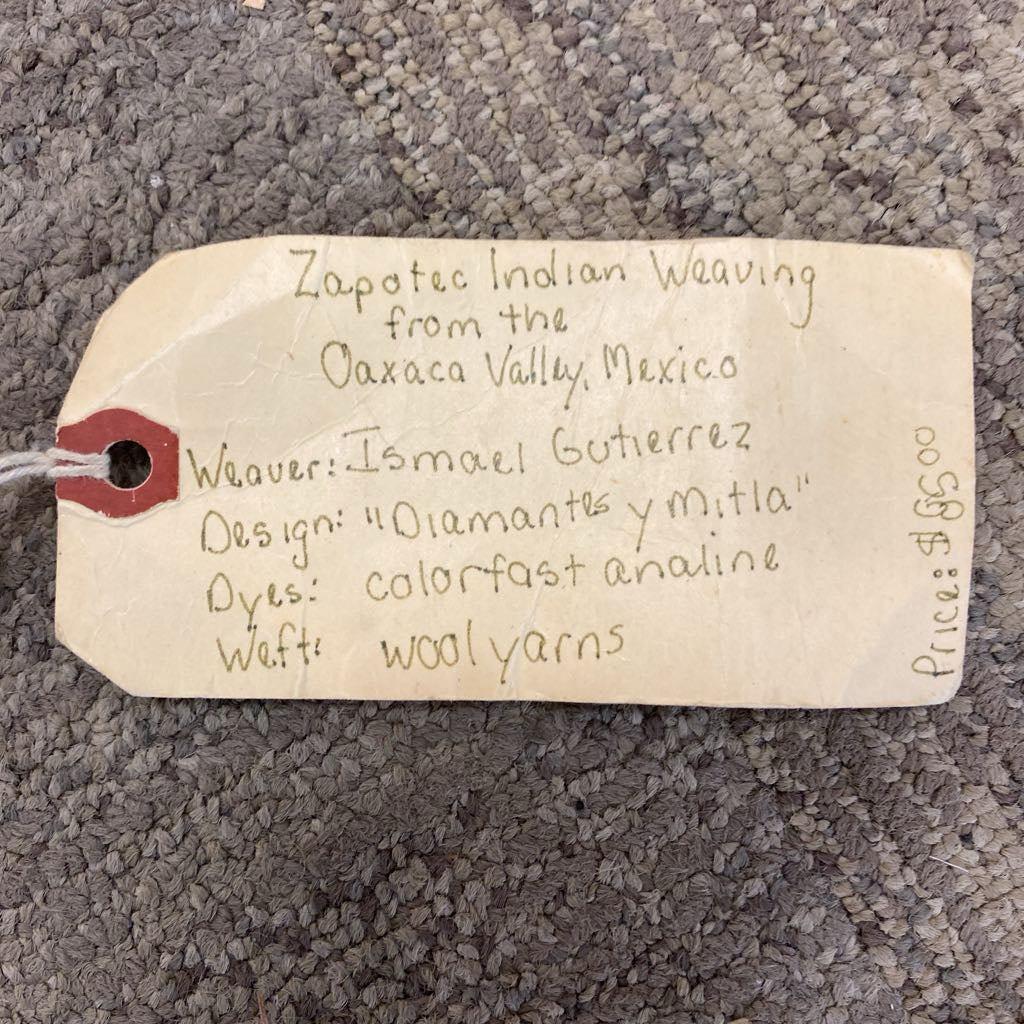 Zapotec Indian Weaving
from the
Oaxaca Valley, Mexico
Weaver: Ismael Gutierrez
Design: "Diamantes y Mitla"
Dyes: colorfast analine
Weft: wool yarns
Price: $